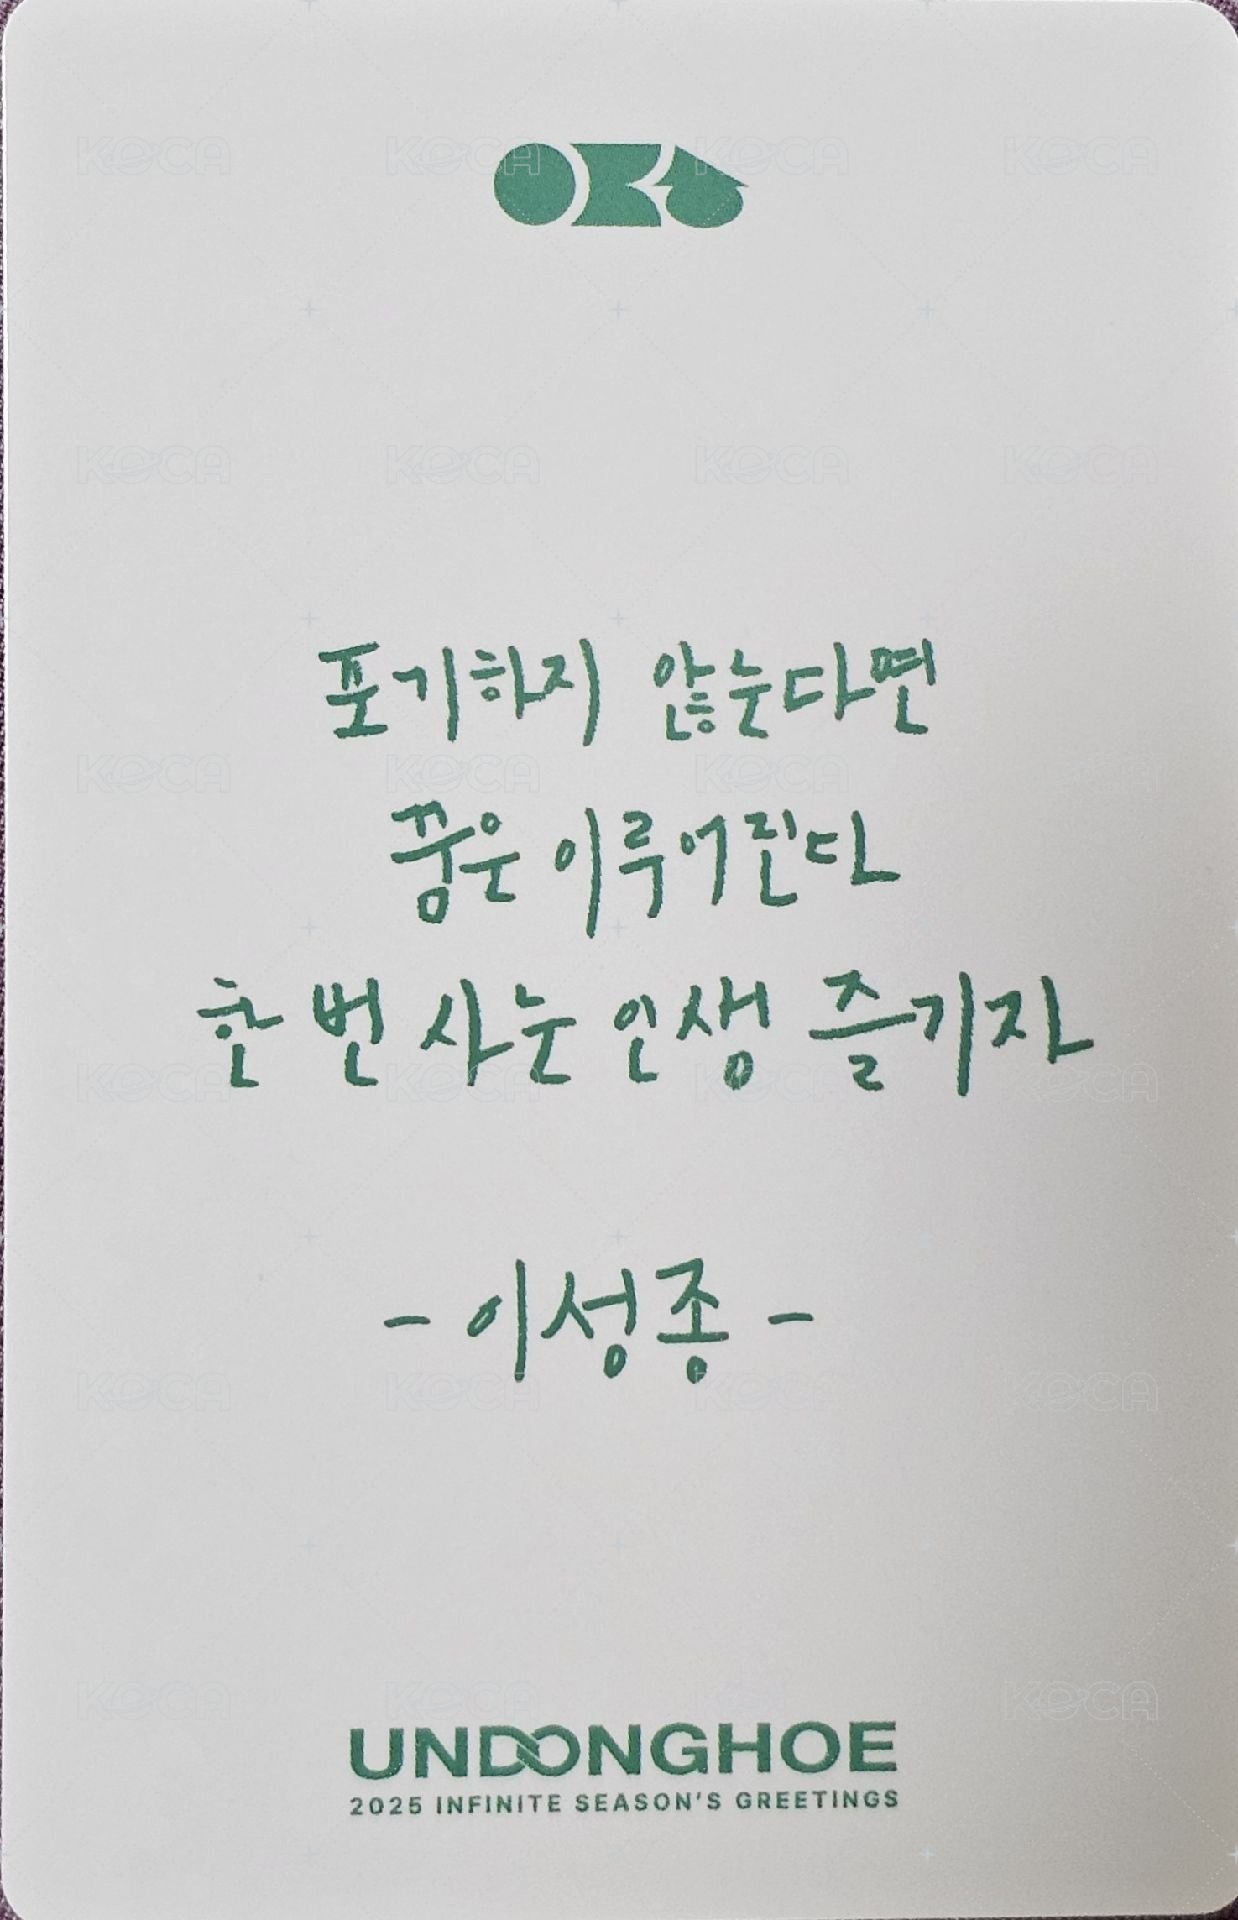 포기하지 않는다면
꿈은 이루어진다
한 번 사는 인생 즐기자
- 이성종 -
UNDONGHOE
2025 INFINITE SEASON'S GREETINGS
KOCA